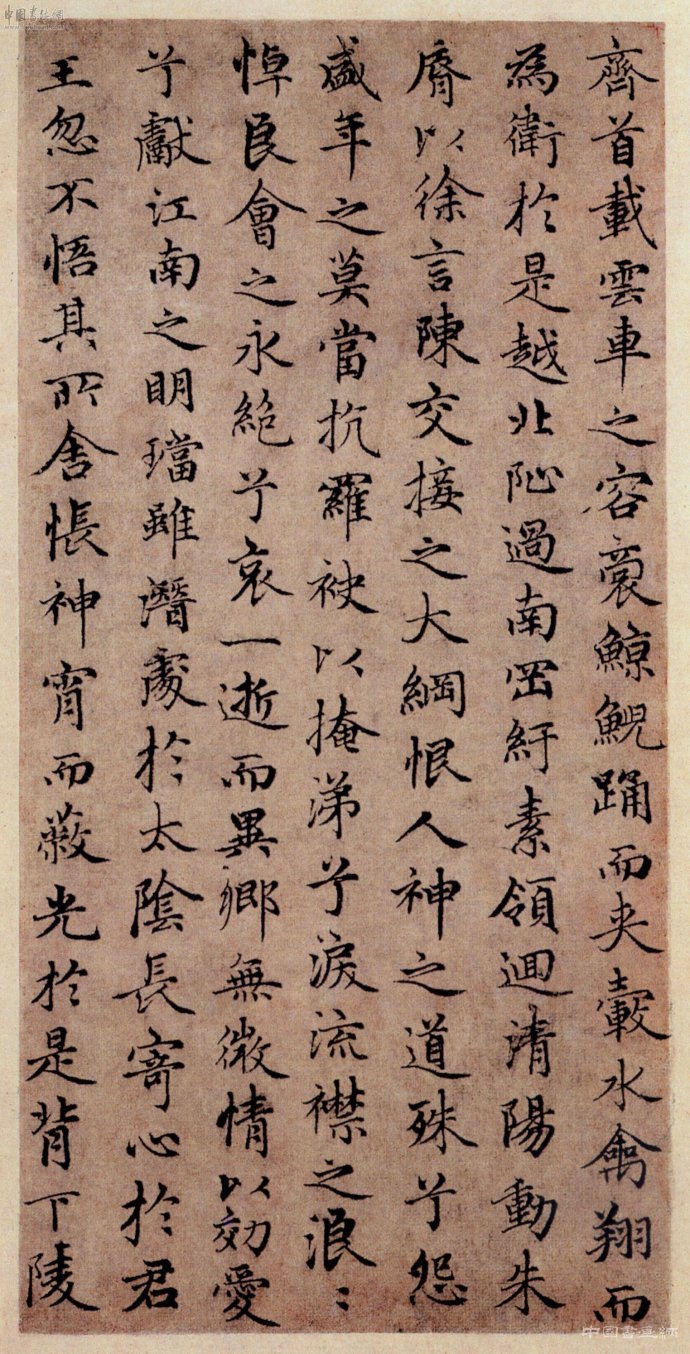 齊首載雲車之容裔鯨鯢踊而夾轂水禽翔而
為衛於是越北沚過南岡紆素領迴清陽動朱
脣以徐言陳交接之大綱恨人神之道殊兮怨
盛年之莫當抗羅袂以掩涕兮淚流襟之浪〻
悼良會之永絕兮哀一逝而異鄉無微情以効愛
兮獻江南之明璫雖潛處於太陰長寄心於君
王忽不悟其所舍悵神宵而蔽光於是背下陵
中國書法網
中國書畫網